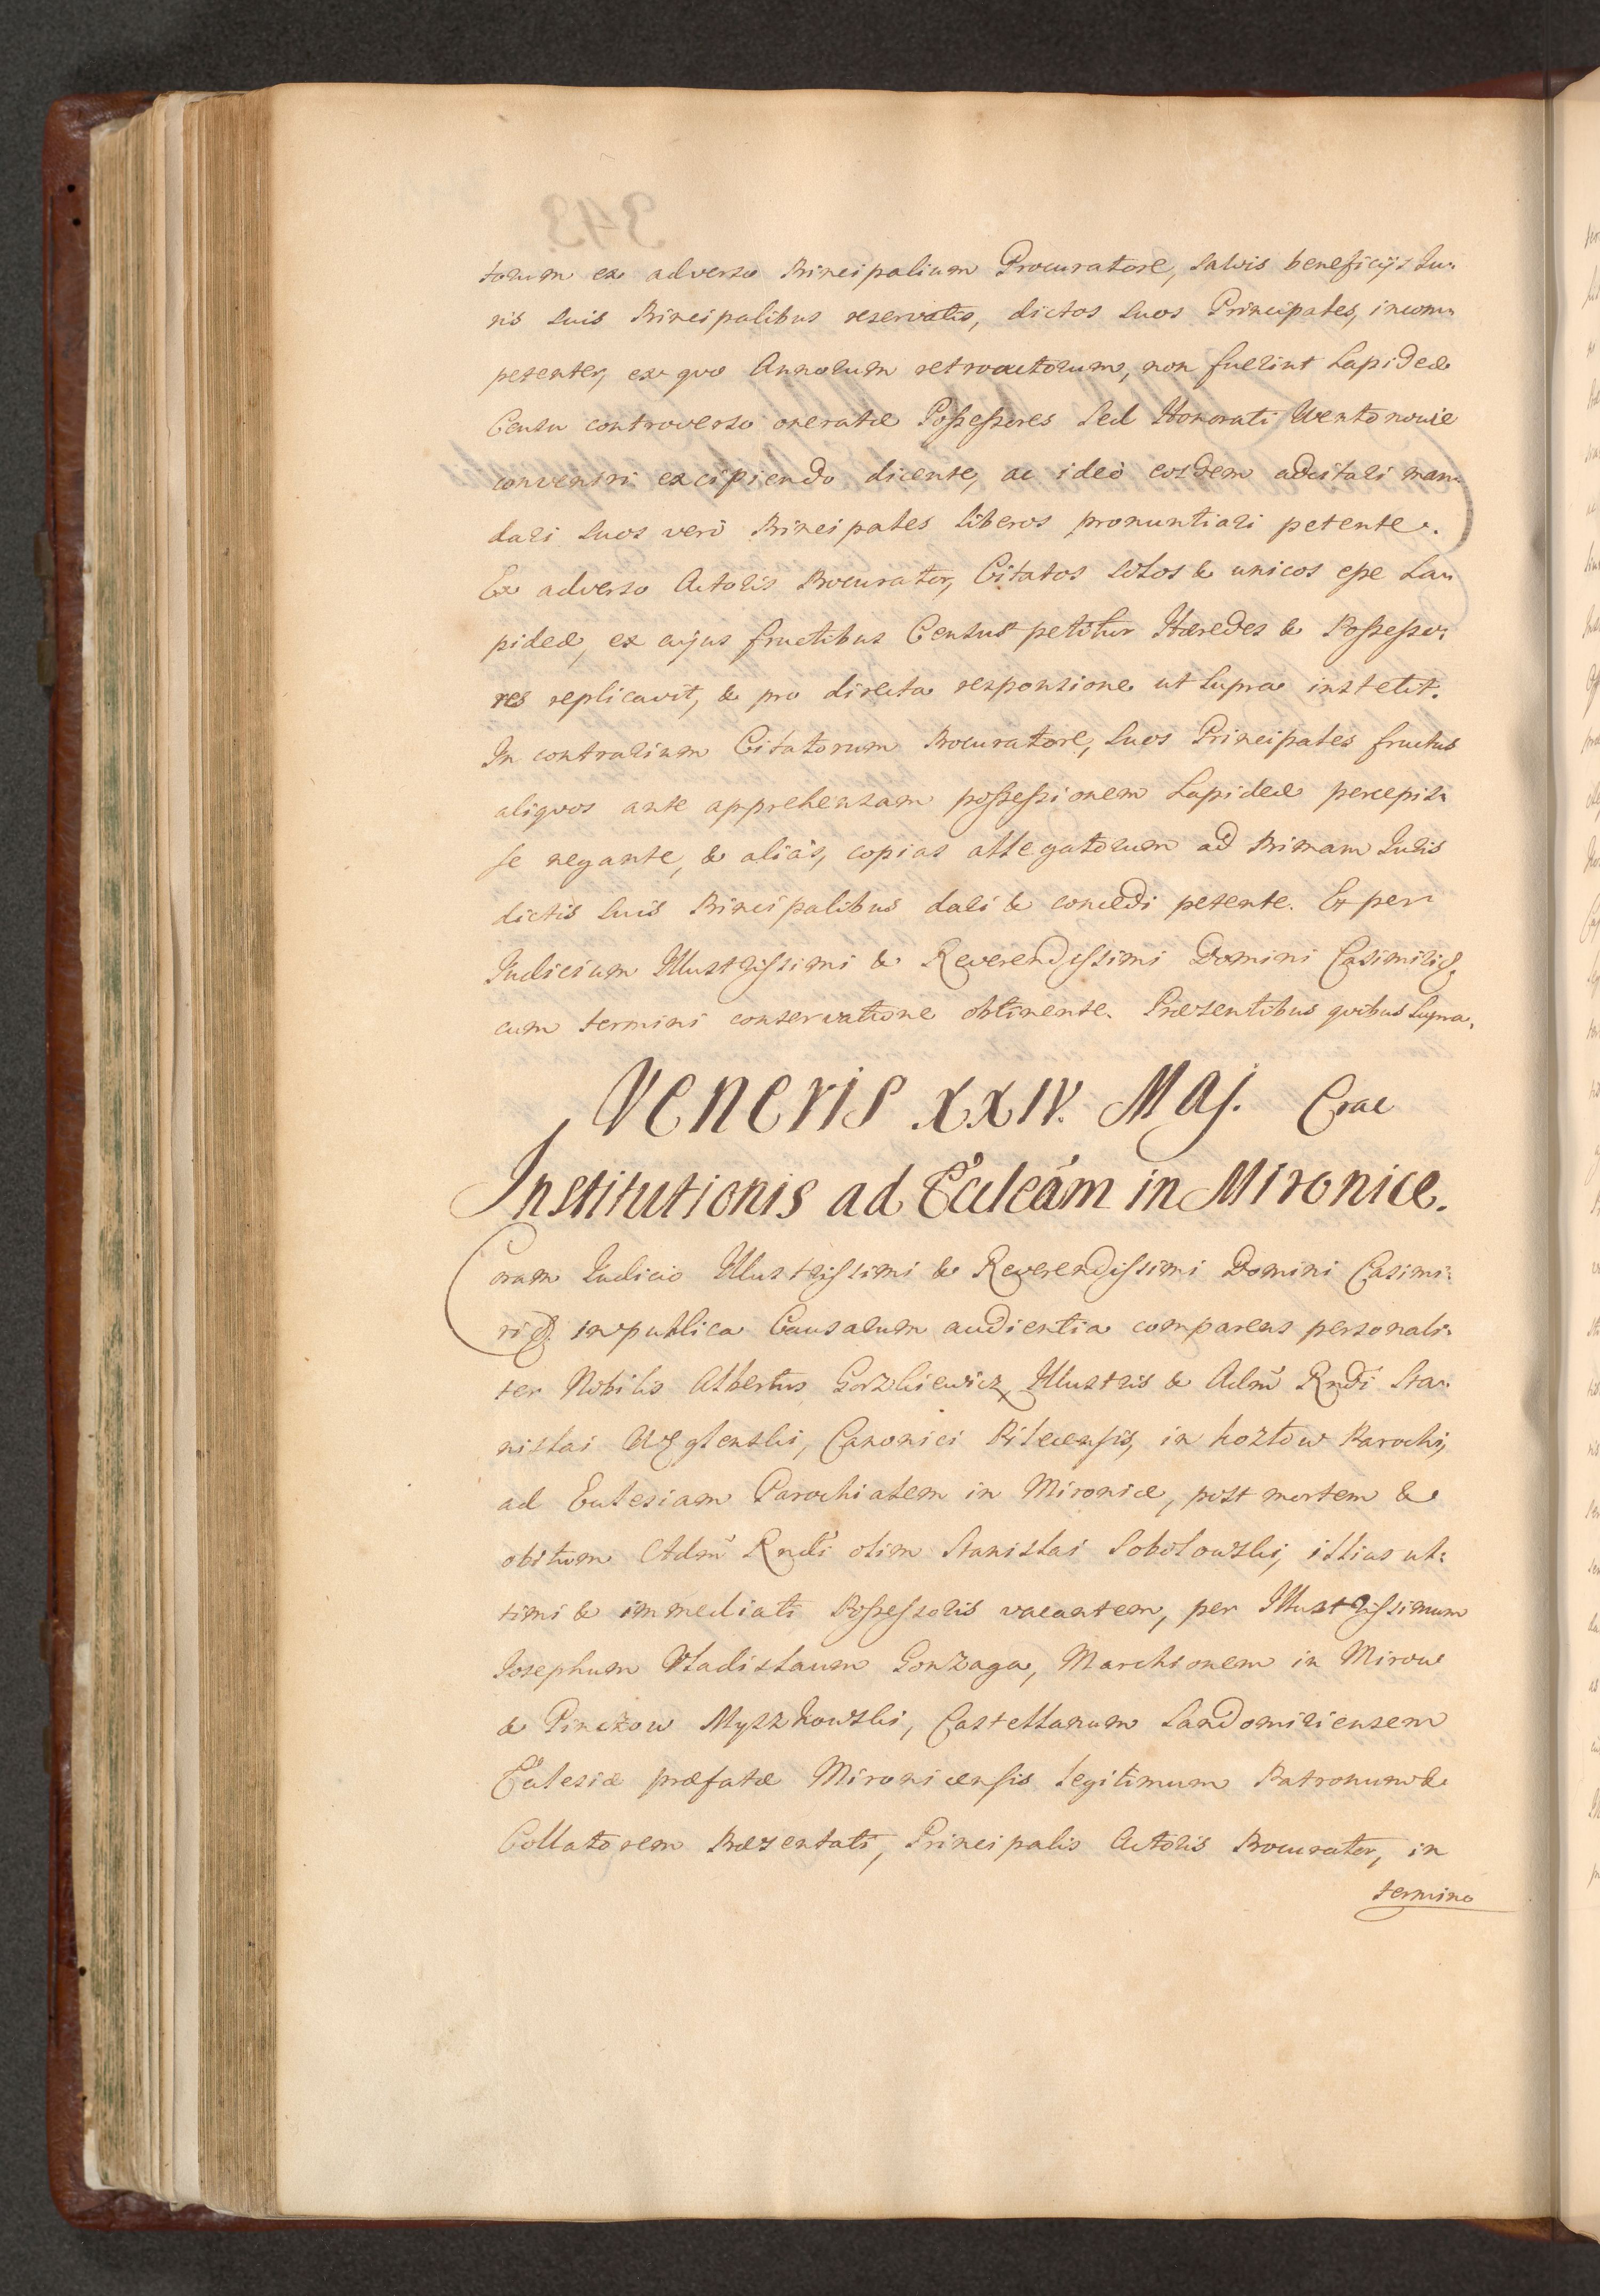 torum ex adverso Principalium Procuratore, salvis beneficijs Iu:
ris suis Principalibus reservatis, dictos suos Principales, incom:
petenter, ex quo Annorum retroactorum, non fuerint Lapideæ
Censu controverso oneratæ Possessores sed Honorati Wentonowie
conveniri excipiendo dicente, ac ideò eosdem adcitari man:
dari suos verò Principales liberos pronuntiari petente.
Ex adverso Actoris Procurator, Citatos solos & unicos esse La:
pideæ, ex cujus fructibus Census petitur Hæredes & Possesso:
res replicavit, & pro directa responsione ut supra institit.
In contrarium Citatorum Procuratore, suos Principales fructus
aliquos ante apprehensam possessionem Lapideæ percepis:
se negante, & aliàs, copias allegatorum ad Primam Iuris
dictis suis Principalibus dari & concedi petente. Et per
Iudicium Illustrissimi & Reverendissimi Domini Casimiri &
cum termini conservatione obtinente. Præsentibus quibus supra.
Veneris XXIV. Maj. Crac
Institutionis ad Eccleam in Mironice.
Coram Iudicio Illustrissimi & Reverendissimi Domini Casimi:
ri &. in publica Causarum audientia comparens personali:
ter Nobilis Albertus Gorzkiewicz Illustris & Adm Rndi Sta:
nislai Węglenski, Canonici Pilecensis, in Kozłow Parochi,
ad Ecclesiam Parochialem in Mironice, post mortem &
obitum Adm Rndi olim Stanislai Sobolowski, illius ul:
timi & immediati Possessoris vacantem, per Illustrissimum
Iosephum Vladislaum Gonzaga, Marchionem in Mirow
& Pinczow Myszkowski, Castellanum Sandomiriensem
Ecclesiæ præfatæ Mironicensis legitimum Patronum &
Collatorem Præsentati, Principalis Actoris Procurator, in
termino